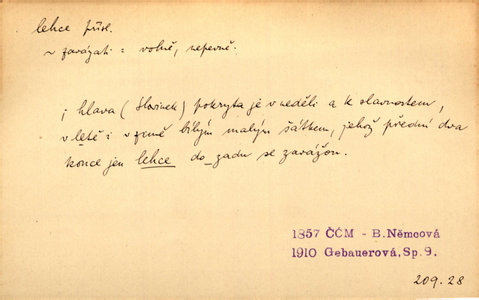 lehce přísl.
~ zavázati = volně, nepevně.
; hlava (Slovinek) pokryta je v neděli a k slavnostem,
v létě i v zimě bílým malým šátkem, jehož přední dva
konce jen lehce do_zadu se zavážou.
1857 ČČM - B.Němcová
1910 Gebauerová,Sp.9.
209.28